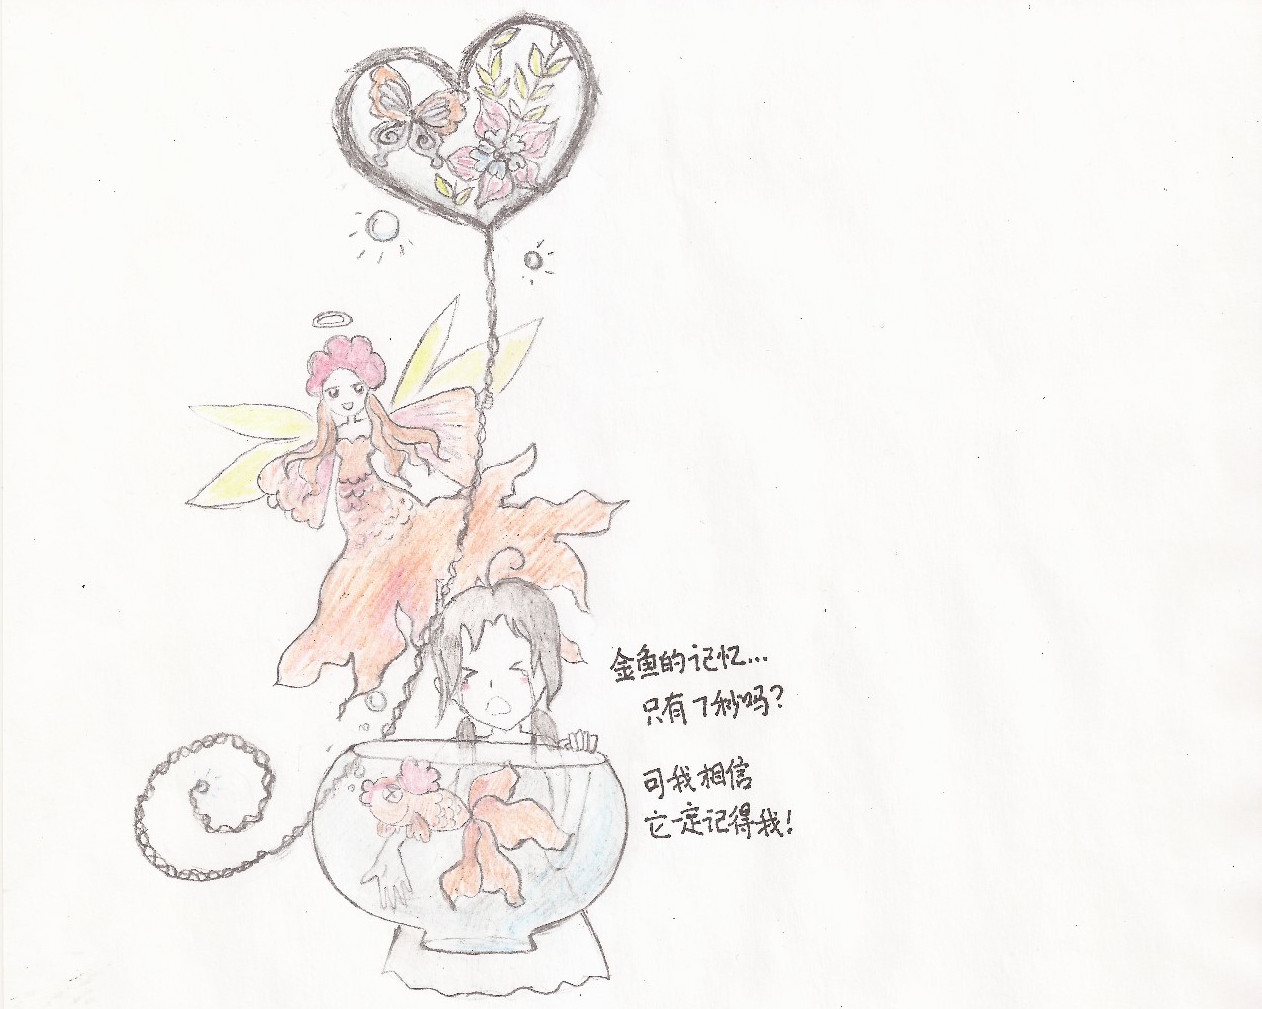 金鱼的记忆...
只有7秒吗?
可我相信
它一定记得我!